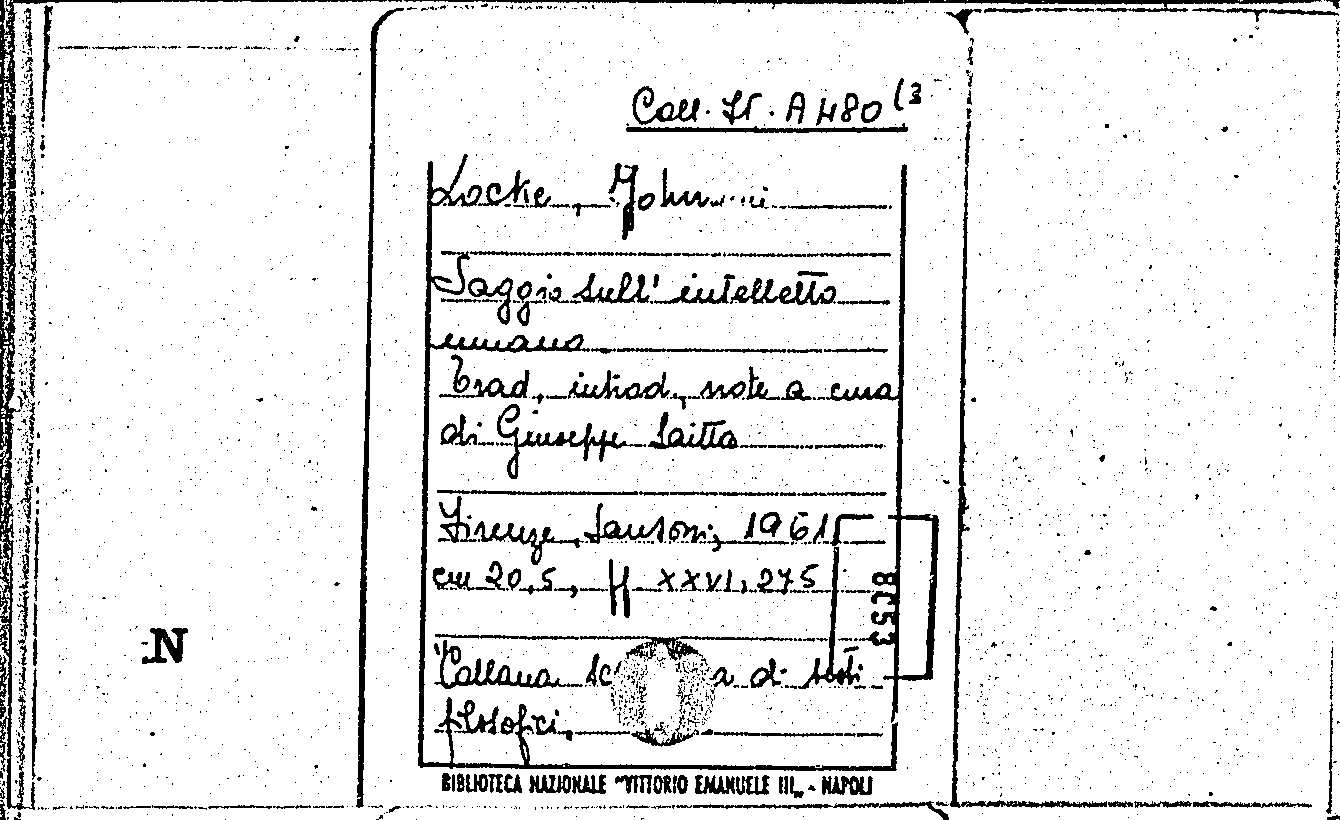 Coll. It. A 480 (3
Locke, John
Saggio sull' intelletto
umano
Trad., introd., note a cura
di Giuseppe Saitta
Firenze, Sansoni, 1961
cm 20,5, pp. XXVI, 275
8C53
Collana di testi
filosofici,
N
BIBLIOTECA NAZIONALE "VITTORIO EMANUELE III„ - NAPOLI